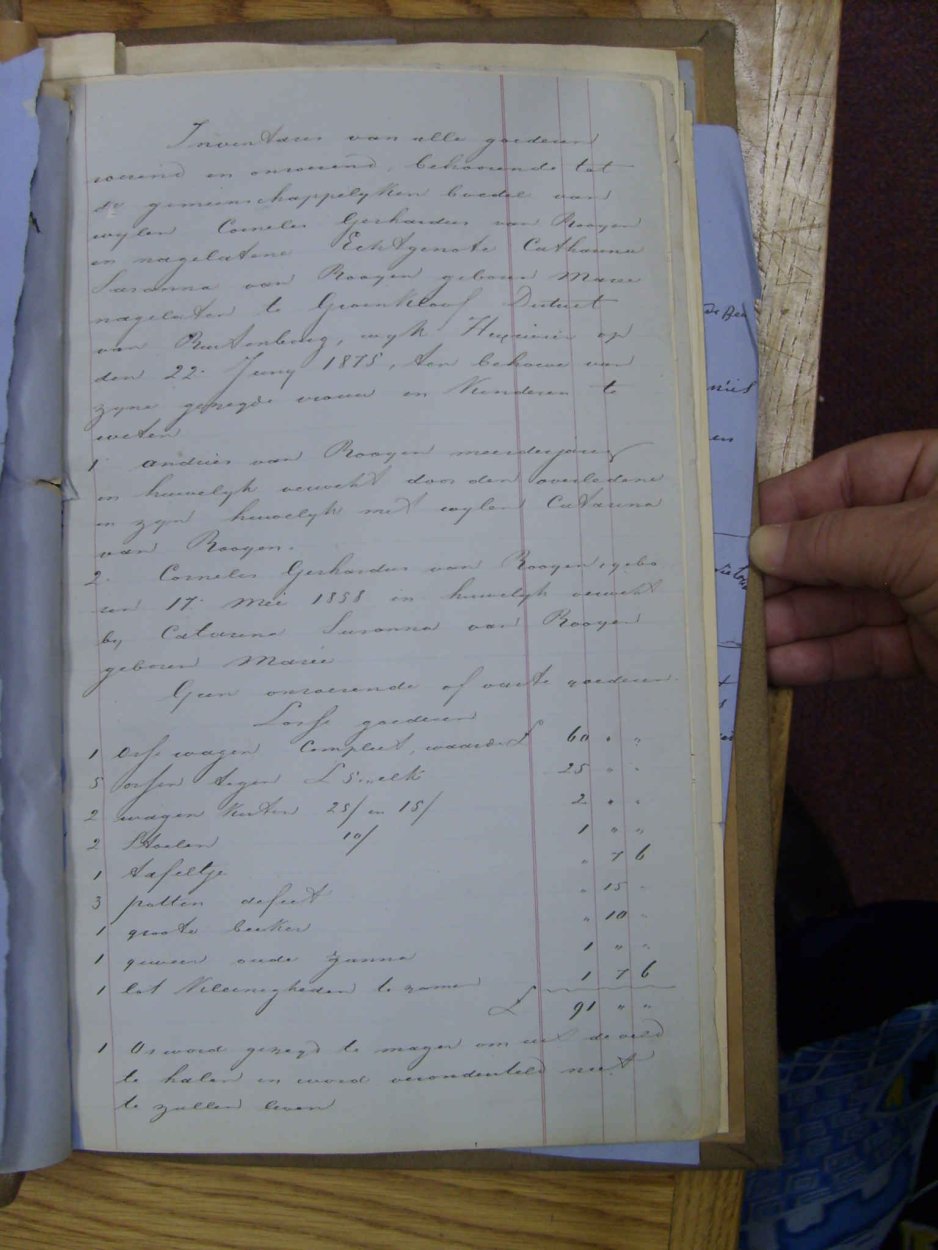 Inventaris van alle goederen
roerend en onroerend, behoorende tot
de gemeenschappelyken boedel van
wylen Cornelis Gerhardus van Rooyen
en nagelatene Echtgenote Catharina
Susanna van Rooyen geboren Maree
nagelaten te Groenkloof District
van Rustenburg, wyk Hexrivier op
den 22 Juny 1875, ten behoeve van
zyne gezegde vrouw en Kinderen te
weten
1 Andries van Rooyen meerderjarig
in huwelyk verwekt door den overledene
in zyn huwelyk met wylen Catarina
van Rooyen.
2. Cornelis Gerhardus van Rooyen, gebo
ren 17 Mei 1858 in huwelyk verwekt
by Catarina Susanna van Rooyen
geboren Maree
Geen onroerende of vaste goederen.
Losse goederen
1 Osse wagen Compleet, waarde £ 60 " "
5 ossen tegen £ 5 " elk 25 " "
2 wagen Kisten 25/ en 15/ 2 " "
2 Stoelen 10/ 1 " "
1 tafeltje " 7 6
3 potten defect " 15 "
1 groote beeker " 10 "
1 geweer oude 1 " "
1 lot Kleenigheden te zamen 1 7 6
£ 91 " "
1 Os word gezegd te mager om uit de veld
te halen en word verondersteld niet
te zullen leven